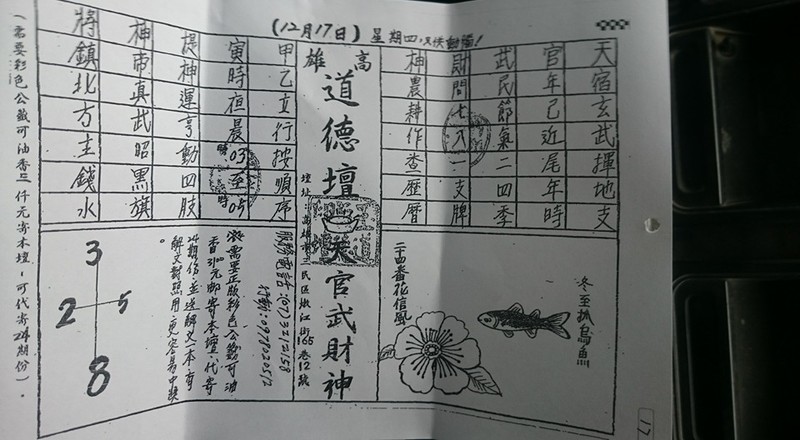 (12月17日) 星期四
天宿玄武揮地支
官年己近尾年時
武民節氣二四季
財問七入一支牌
神農耕作查歷曆
高雄
道德壇
天官武財神
壇址:高雄市三民區淞江街165巷12號
甲乙直行按順序
寅時夜晨03時至05時
提神運亨動四肢
神帝真武昭黑旗
將鎮北方主錢水
冬至抓烏魚
二十四番花信風
服務電話:(07)3215158
需要正版彩色公籤可油
香 元郵寄本壇,代寄
24期份,並送解文一本,有
解文對照用,更容易中獎。
3
2 5
8
(需要彩色公籤可油香三仟元寄本壇,可代寄24期份)。
17